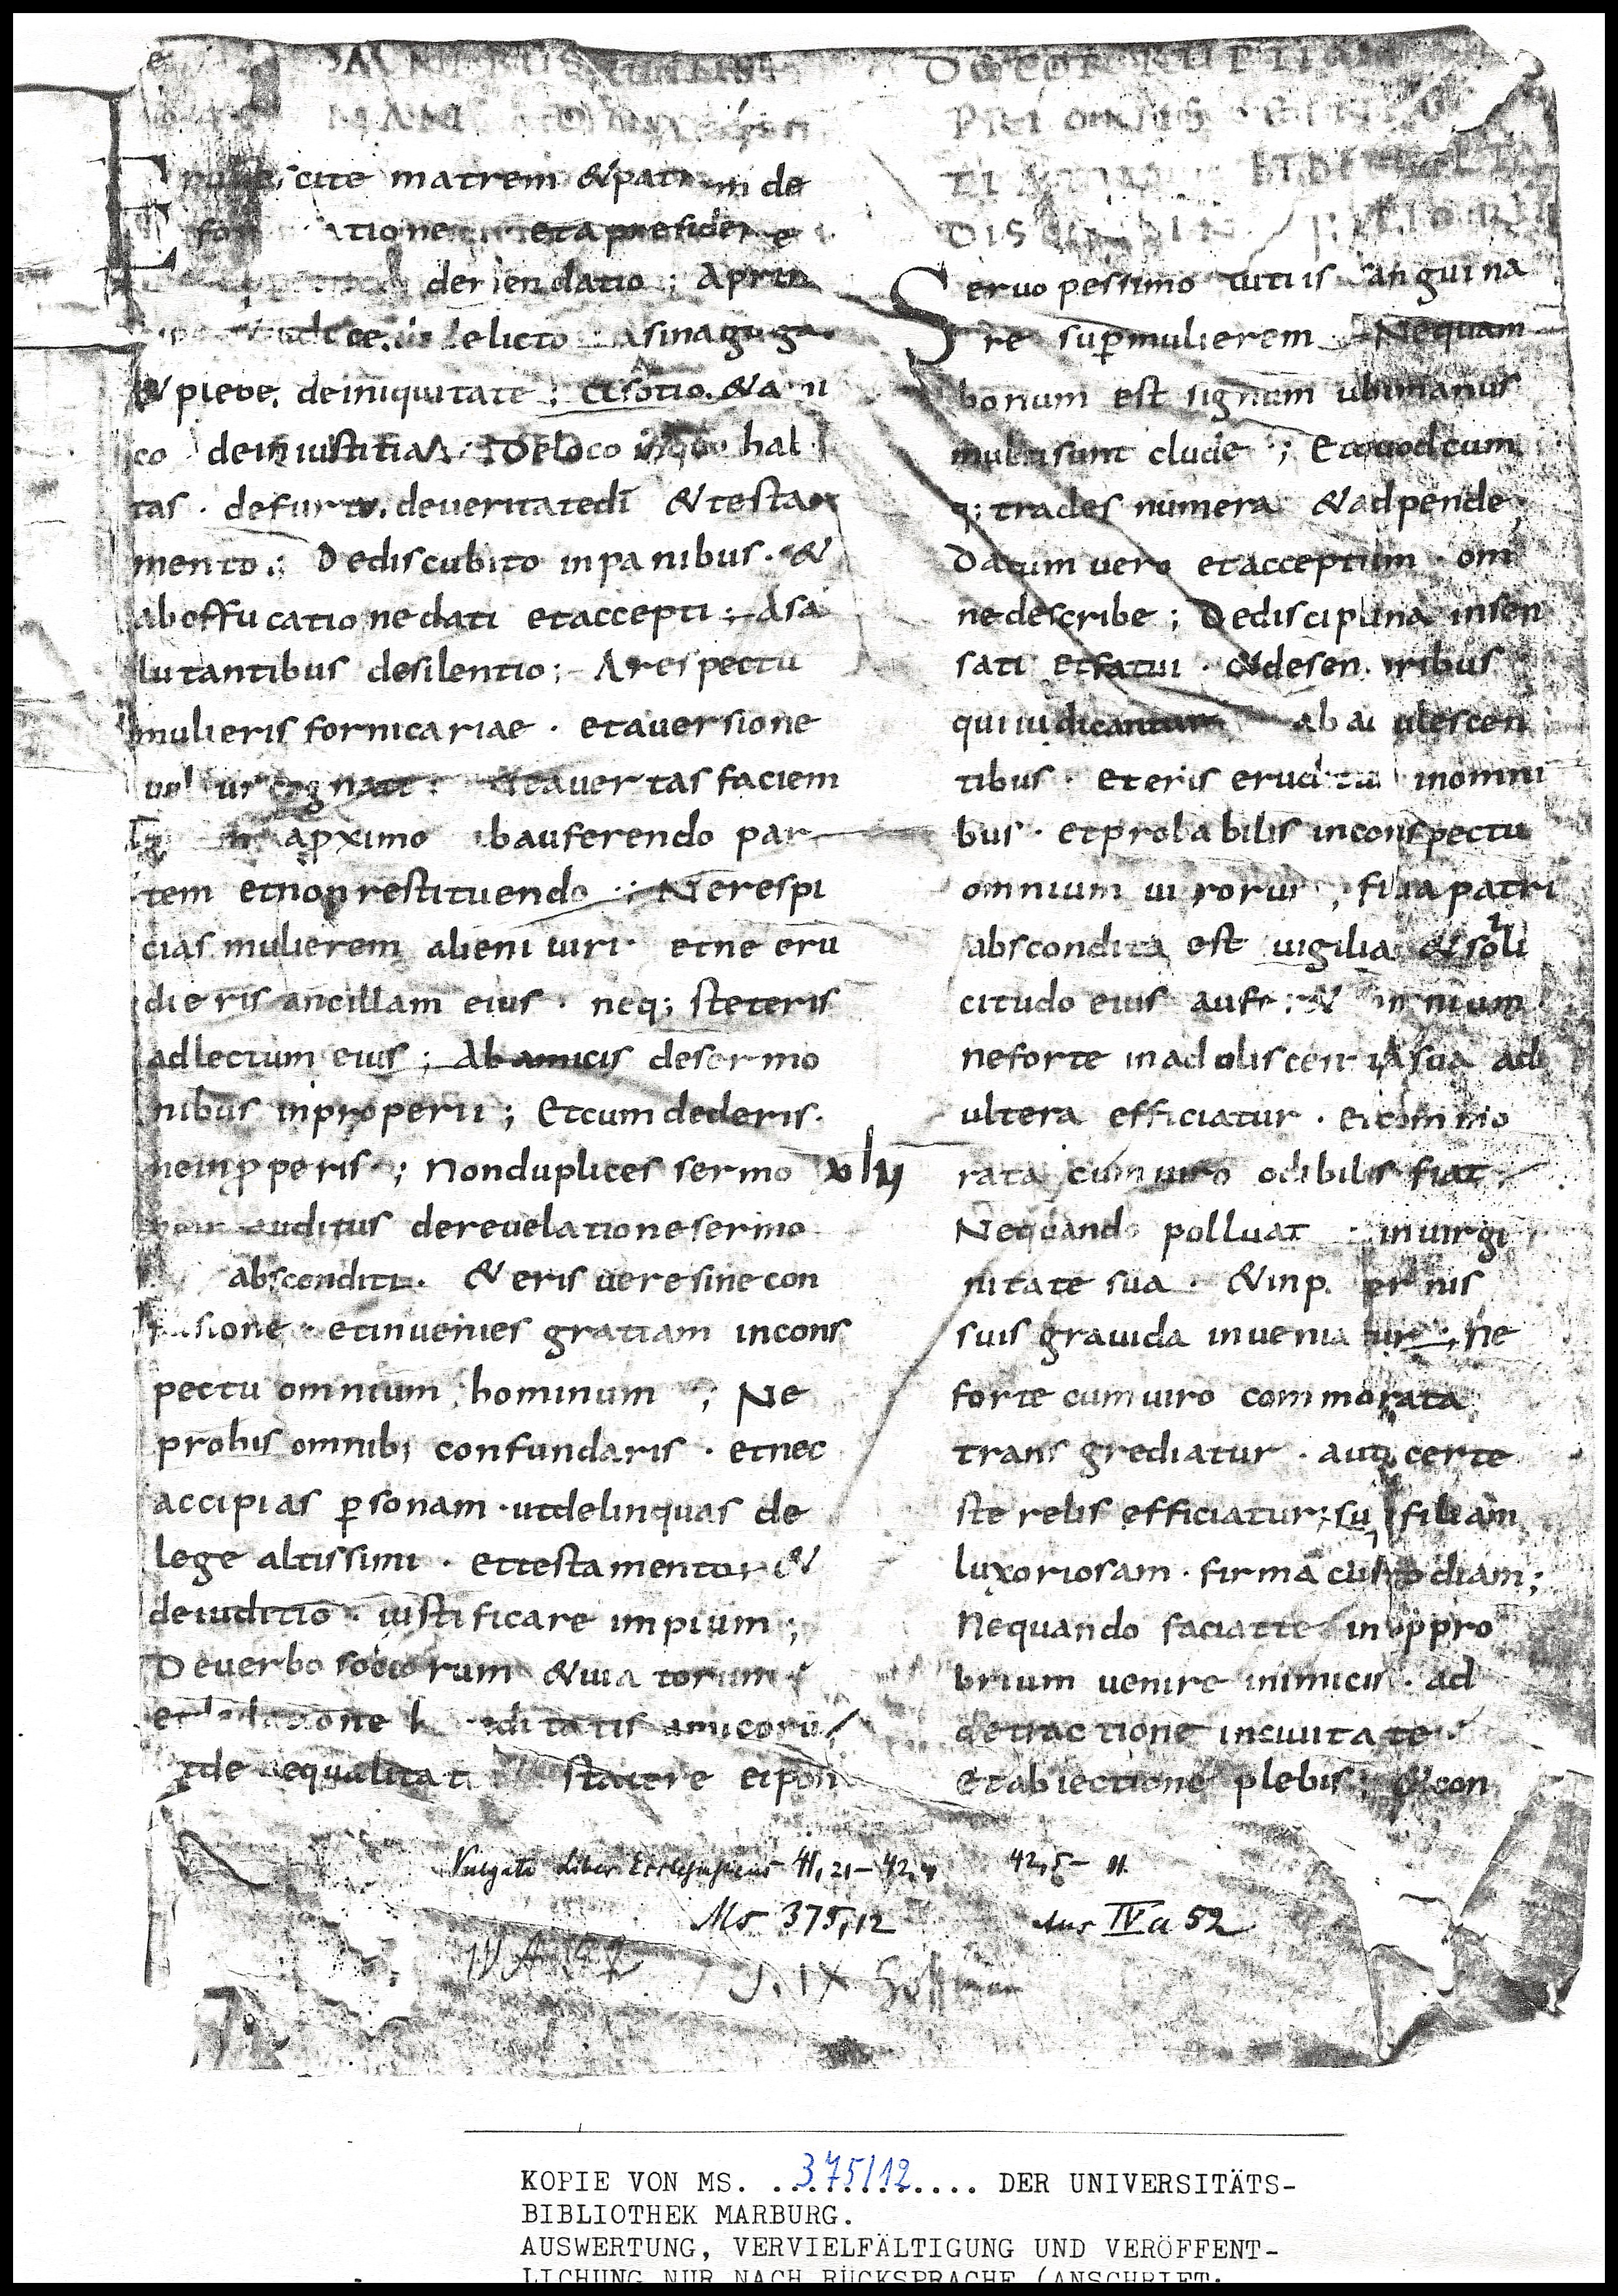 matrem & patrem de
atione et a preside
de mendatio ; A prin
iudice. de delicto a sinagoga
& plebe. de iniquitate ; A sotio. & ami
co de iniustitia ; De loco in quo habi
tas . de furto. de veritate dī & testa
mento ; De discubito in panibus . &
ab offucatione dati et accepti ; A sa
lutantibus de silentio ; A respectu
mulieris fornicariae . et aversione
cognati ; avertas faciem
a ꝓximo ab auferendo par
tem et non restituendo ; Ne respi
cias mulierem alieni uiri . et ne scru
dieris ancillam eius . neq; steteris
ad lectum eius ; Ab amicis de sermo
nibus inproperii ; Et cum dederis .
ne inꝓperis ; Non duplices sermo xlij
auditus de reuelatione sermo
absconditi . & eris uere sine con
fusione . et inuenies gratiam in cons
pectu omnium hominum ; Ne
pro his omnib; confundaris . et nec
accipias ꝑsonam . ut delinquas de
lege altissimi . et testamento &
de iuditio . iustificare impium ;
De uerbo sociorum & uiatorum
et datione hereditatis amicorū
de aequalitat staterae et pon
DE CORRUPTIO
PRIORIS
DISCIPLIN
Seruo pessimo latus sanguina
re suꝑ mulierem Nequam
bonum est signum ubi manus
multae sunt clude ; Et quodcum
q; trades numera & adpende
Datum uero et acceptum . om
ne describe ; De disciplina insen
sati et fatui . & de senioribus
qui iudicantur ab adulescen
tibus . et eris eruditus in omni
bus . et probabilis in conspectu
omnium uirorum ; filia patri
abscondita est uigilia & soli
citudo eius aufert somnium
ne forte in adoliscentia sua ad
ultera efficiatur . et commo
rata cum uiro odibilis fiat
Nequando polluat in uirgi
nitate sua . & in paternis
suis grauida inueniatur ; ne
forte cum uiro commorata
transgrediatur . aut certe
sterelis efficiatur ; sup filiam
luxoriosam . firma custodiam ;
Nequando faciat te in oppro
brium uenire inimicis . ad
detractione in ciuitate
et abiectione plebis ; & con
Vulgata Liber Ecclesiasticus 41,21–42,4 42,5– 11.
Ms 375,12 aus IV a 52
S. IX
KOPIE VON MS. ..375/12.... DER UNIVERSITÄTS-
BIBLIOTHEK MARBURG.
AUSWERTUNG, VERVIELFÄLTIGUNG UND VERÖFFENT-
LICHUNG NUR NACH RÜCKSPRACHE (ANSCHRIFT: